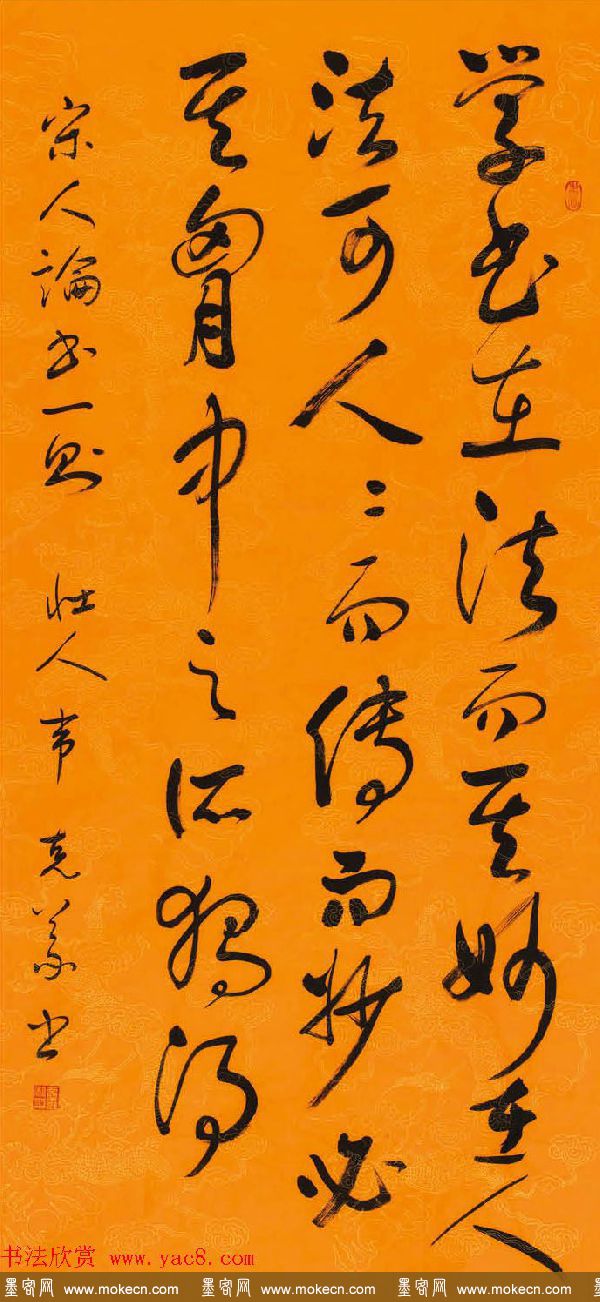 学书在法而其妙在人
法可人〻而传而妙必
其胸中之所独得
宋人論书一则 壮人韦克义书
书法欣赏 www.yac8.com
墨客网 www.mokecn.com 墨客网 www.mokecn.com 墨客网 www.mokecn.com